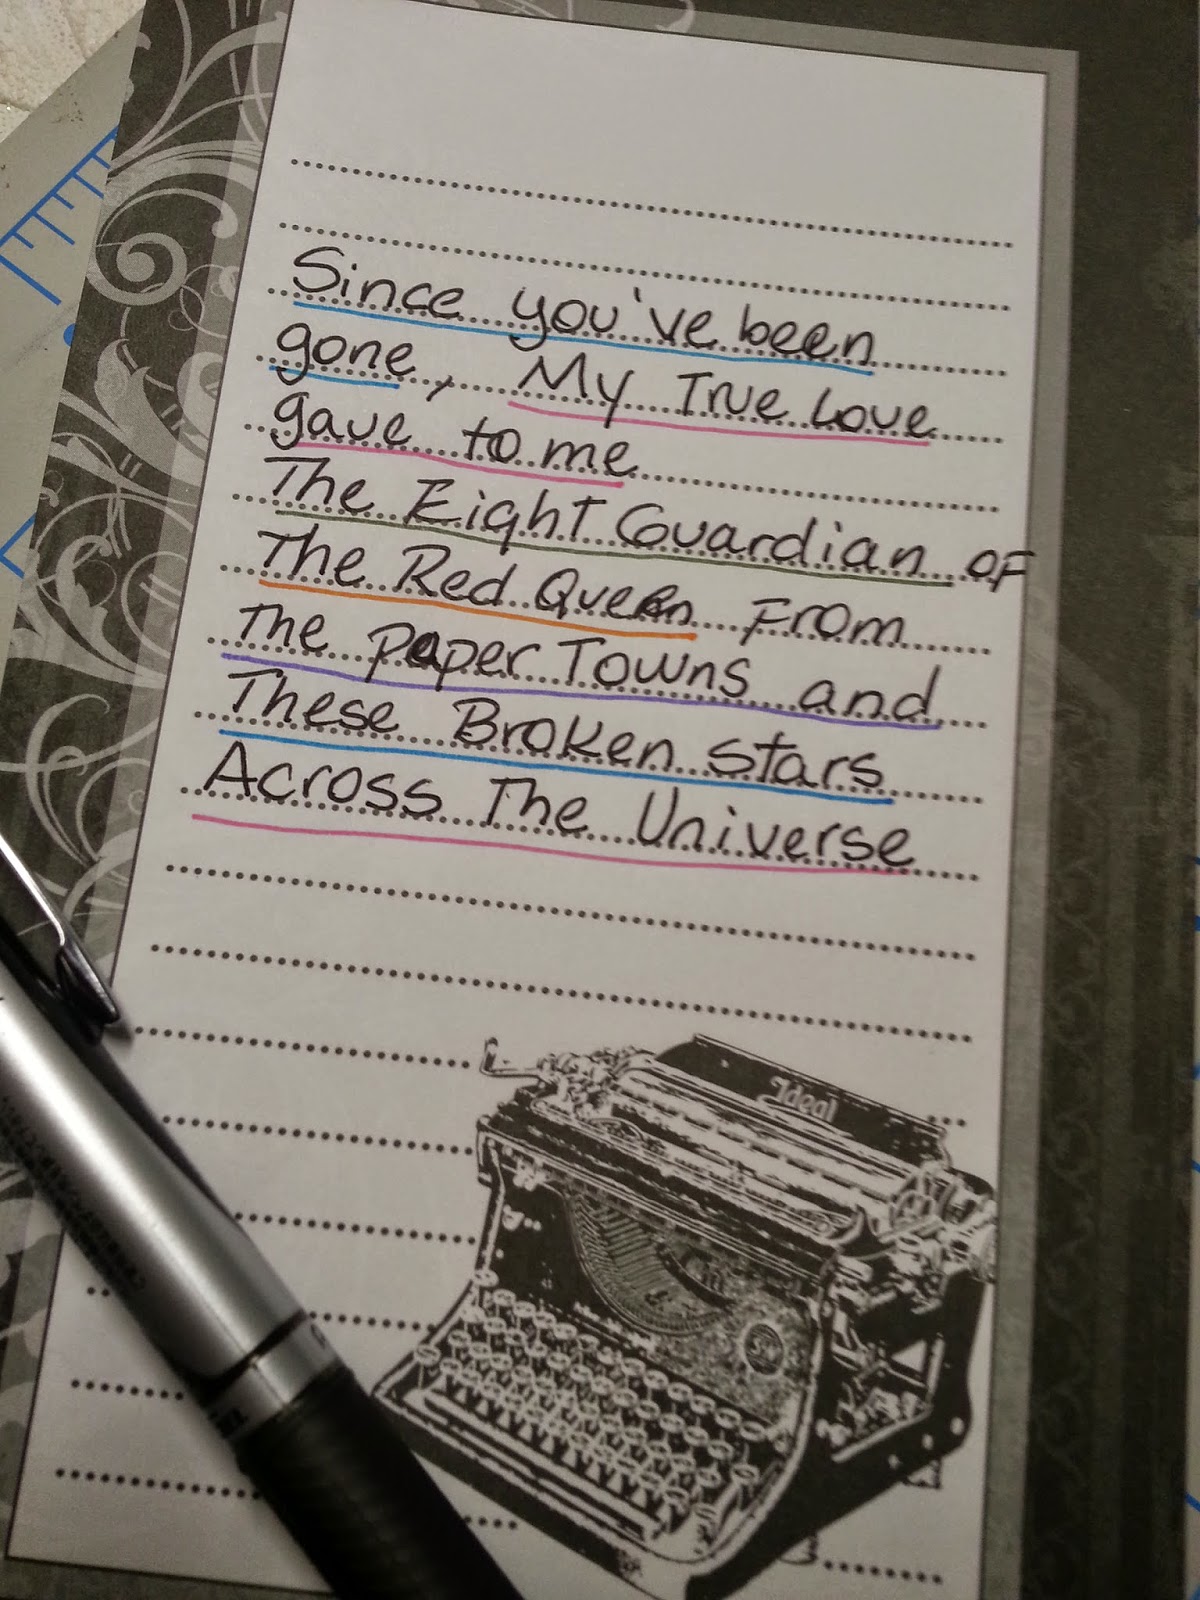 Since you've been
gone, My True Love
gave to me
The Eight Guardian of
The Red Queen From
The Paper Towns and
These Broken Stars
Across The Universe
Ideal